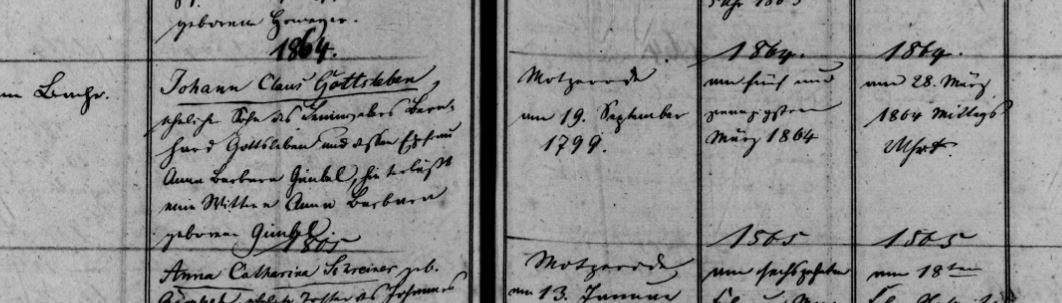 geborenen
1864.
Johann Claus Gottsleben
ehelicher Sohn des Bern-
hard Gottsleben und dessen Ehefrau
Anna Barbara Gimbel, hinterläßt
eine Wittwe Anna Barbara
geborene Gimbel.
1865
Anna Catharina Schreiner geb.
eheliche Tochter des Johannes
Motzerode
am 19. September
1799.
Motzerode,
am 13. Januar
1864.
am fünf und
zwanzigsten
März 1864
1865
am sechszehnten
1864.
am 28. März
1864 Mittags
1865
am 18ten